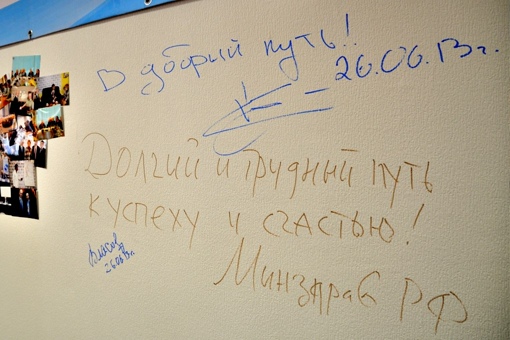 В добрый путь!
26.06.13г.
Долгий и трудный путь
к успеху и счастью!
Власов
26.06.13г.
Минздрав РФ